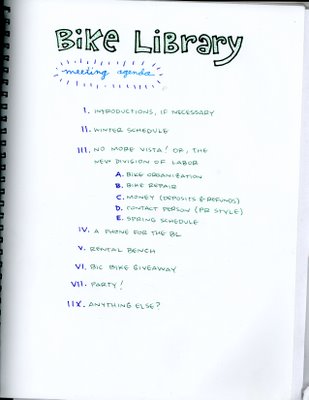 BIKE LIBRARY
meeting agenda
I. INTRODUCTIONS, IF NECESSARY
II. WINTER SCHEDULE
III. NO MORE VISTA! OR, THE
NEW DIVISION OF LABOR
A. BIKE ORGANIZATION
B. BIKE REPAIR
C. MONEY (DEPOSITS & REFUNDS)
D. CONTACT PERSON (PR STYLE)
E. SPRING SCHEDULE
IV. A PHONE FOR THE BL
V. RENTAL BENCH
VI. BIC BIKE GIVEAWAY
VII. PARTY!
IIX. ANYTHING ELSE?